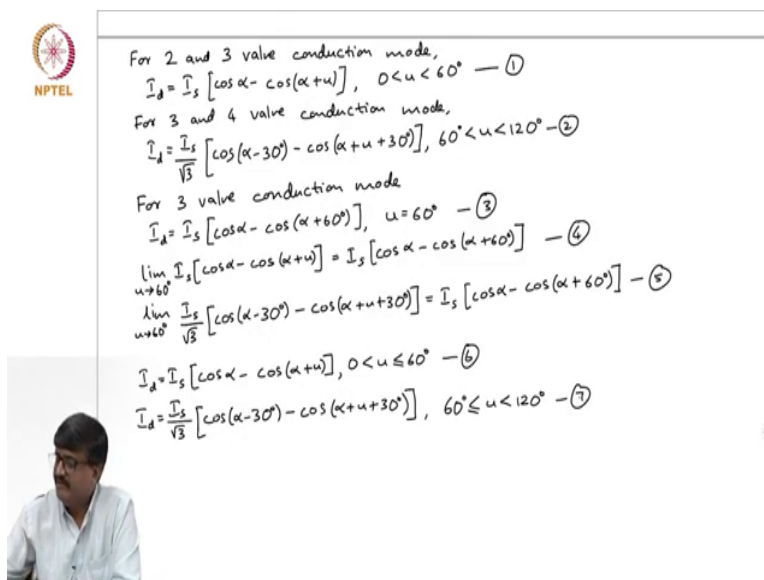 NPTEL
For 2 and 3 valve conduction mode,
I_d = I_s [cosα - cos(α+u)], 0<u<60° — ①
For 3 and 4 valve conduction mode,
I_d = I_s/√3 [cos(α-30°) - cos(α+u+30°)], 60°<u<120° - ②
For 3 valve conduction mode
I_d = I_s [cosα - cos(α+60°)], u=60° - ③
lim u→60° I_s [cosα - cos(α+u)] = I_s [cosα - cos(α+60°)] - ④
lim u→60° I_s/√3 [cos(α-30°) - cos(α+u+30°)] = I_s [cosα - cos(α+60°)] - ⑤
I_d = I_s [cosα - cos(α+u)], 0<u≤60° - ⑥
I_d = I_s/√3 [cos(α-30°) - cos(α+u+30°)], 60°≤u<120° - ⑦